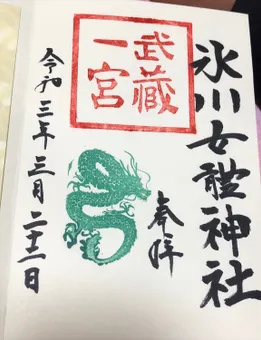 氷川女體神社
奉拝
武蔵
一宮
令和三年三月二十一日